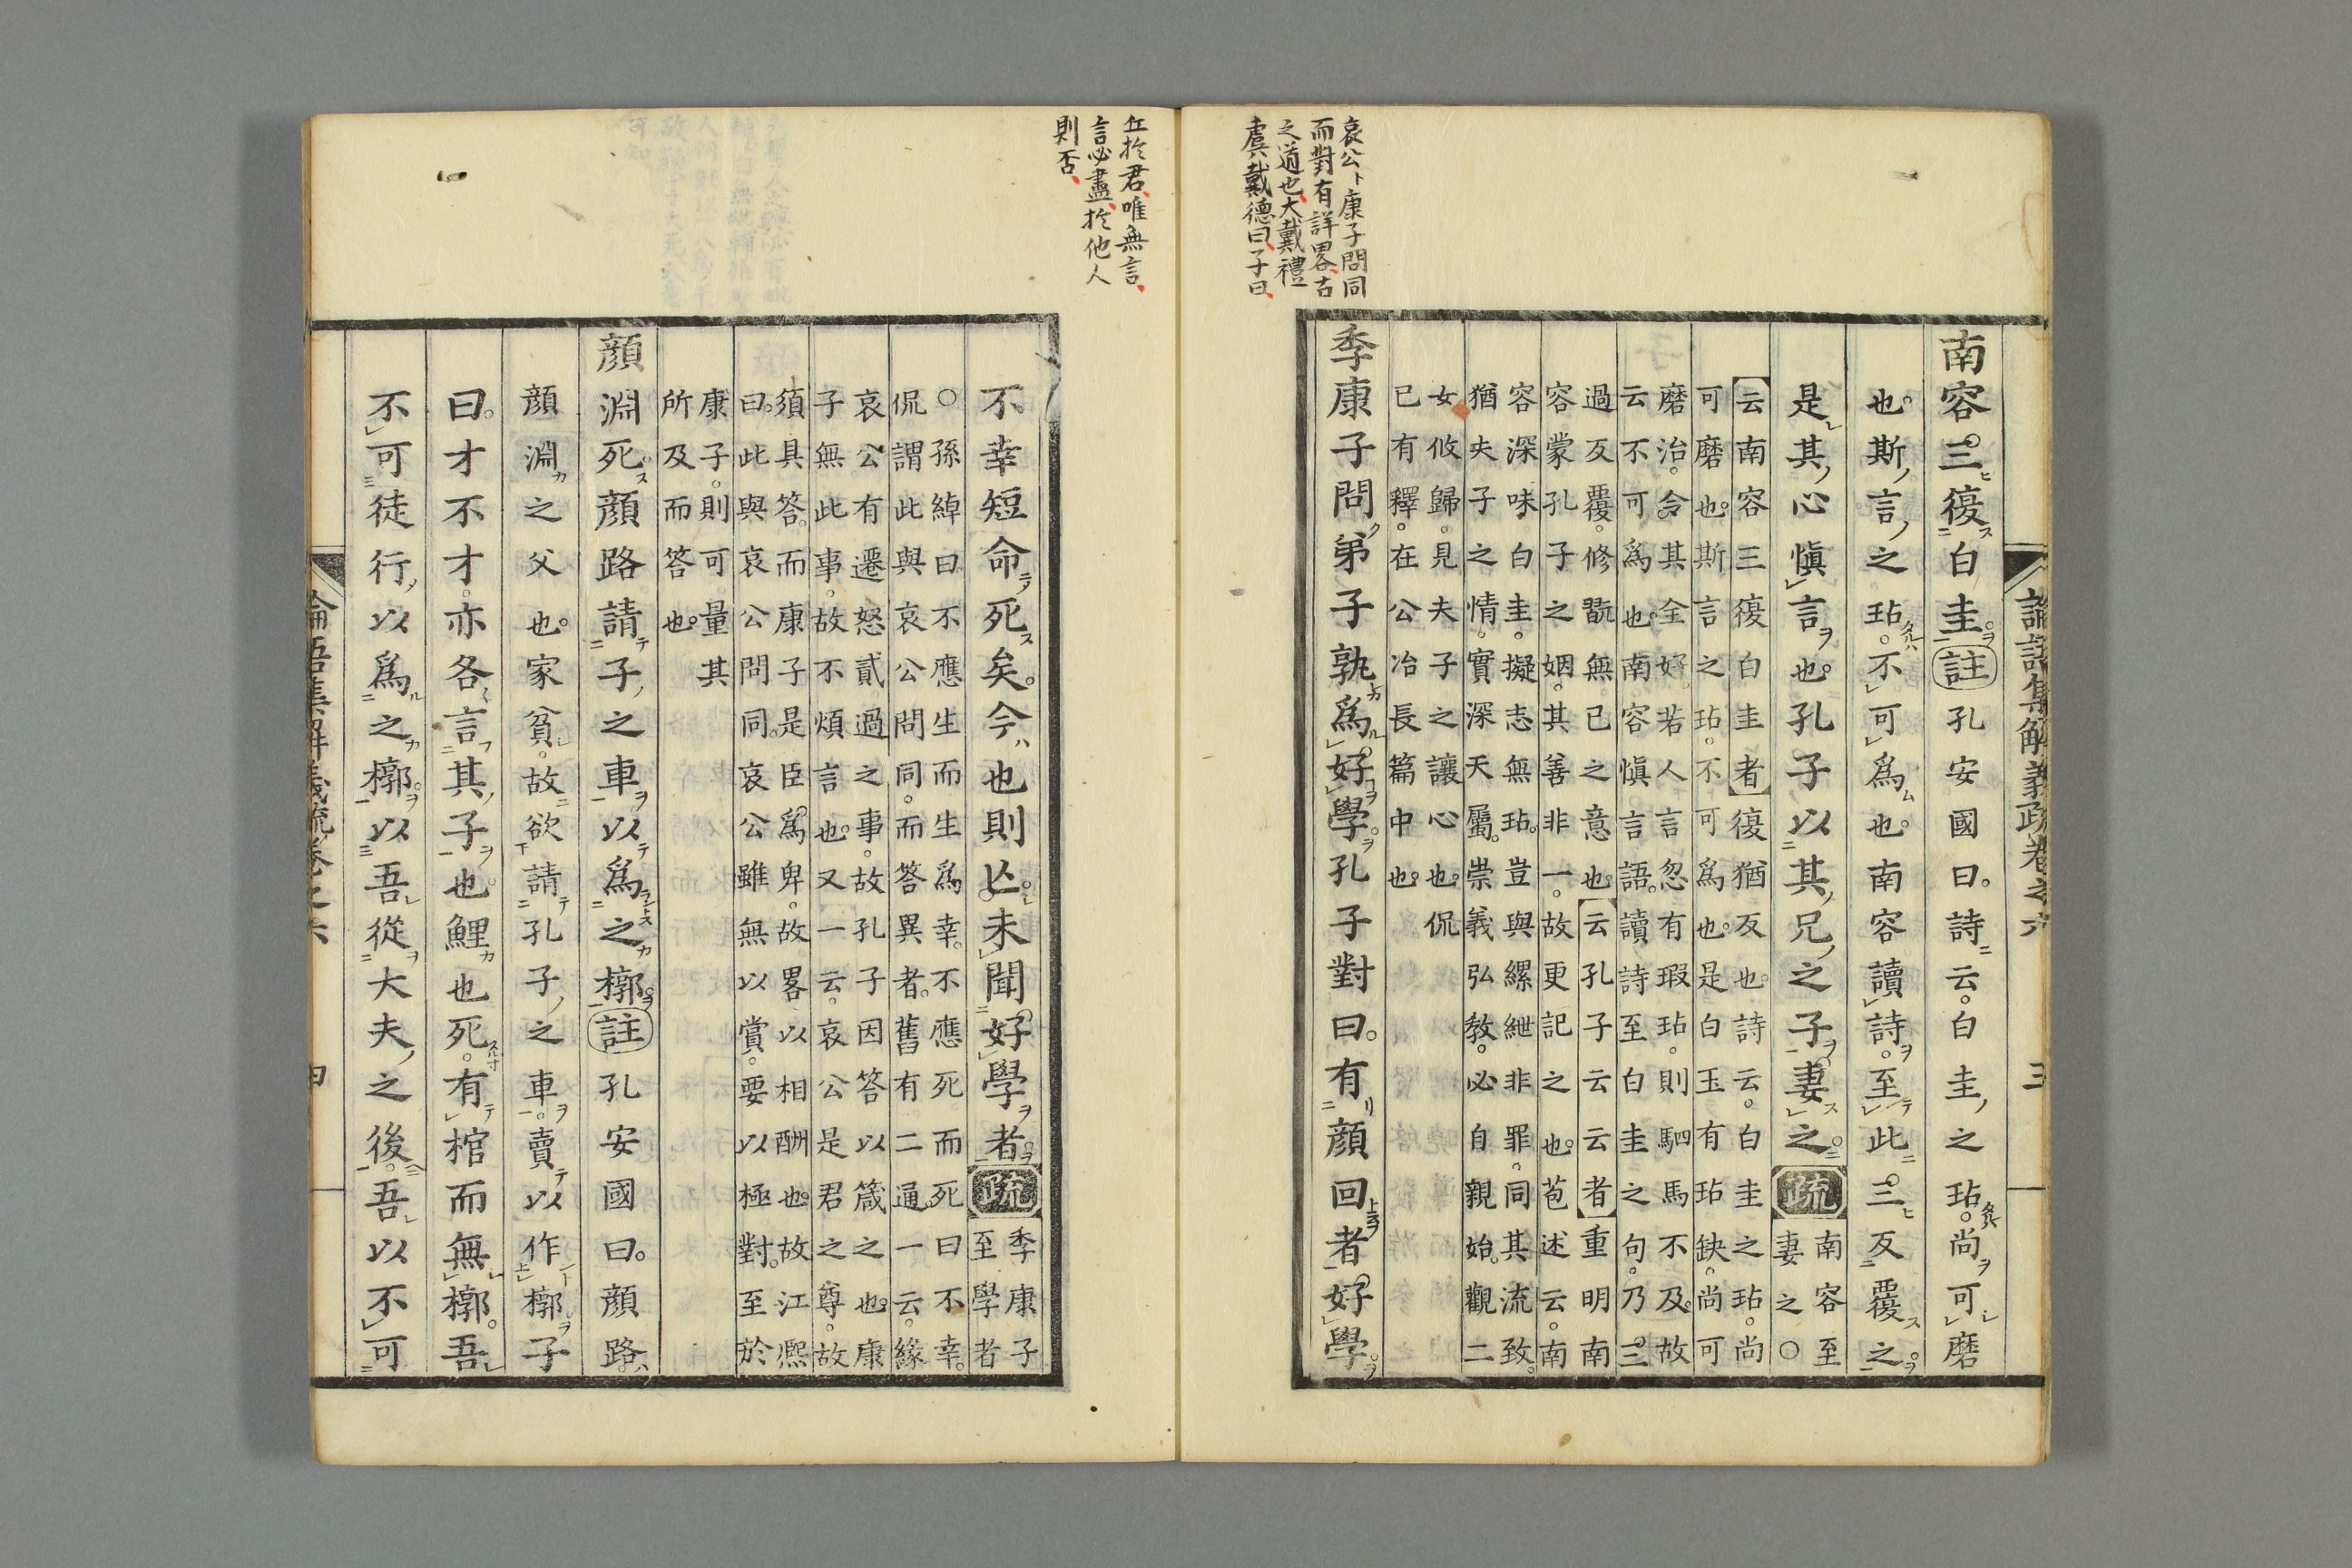 哀公、康子問同
而對有詳畧、古
之道也、大戴禮
虞戴德曰、子曰、
丘於君、唯無言、
言必盡、於他人
則否、
論語集解義疏卷之六 三
南容三復白圭註孔安國曰。詩云。白圭之玷。尚可磨
也。斯言之玷。不可爲也。南容讀詩。至此。三反覆之
是其心愼言也。孔子以其兄之子妻之疏南容至
妻之○
云南容三復白圭者復猶反也。詩云。白圭之玷。尚
可磨也。斯言之玷。不可爲也。是白玉有玷缺。尚可
磨治。令其全好。若人言忽有瑕玷。則駟馬不及。故
云不可爲也。南容愼言語。讀詩至白圭之句。乃三
過反覆。修翫無已之意也。云孔子云云者重明南
容蒙孔子之姻。其善非一。故更記之也。苞述云。南
容深味白圭。擬志無玷。豈與縲紲非罪。同其流致。
猶夫子之情。實深天屬。崇義弘教。必自親始。觀二
女攸歸。見夫子之讓心也。侃
已有釋。在公冶長篇中也。
季康子問弟子孰爲好學孔子對曰。有顏回者好學
不幸短命死矣。今也則亡。未聞好學者疏季康子
至學者
○孫綽曰不應生而生爲幸。不應死而死曰不幸。
侃謂此與哀公問同。而答異者。舊有二通。一云。緣
哀公有遷怒貳過之事。故孔子因答以箴之也。康
子無此事。故不煩言也。又一云。哀公是君之尊。故
須具答。而康子是臣爲卑。故畧以相酬也。故江熙
曰。此與哀公問同。哀公雖無以賞。要以極對。至於
康子。則可量其
所及而答也。
顏淵死顏路請子之車以爲之槨註孔安國曰。顏路
顏淵之父也。家貧。故欲請孔子之車。賣以作槨子
曰。才不才。亦各言其子也。鯉也死。有棺而無槨。吾
不可徒行以爲之槨。以吾從大夫之後。吾以不可
論語集解義疏卷之六 四